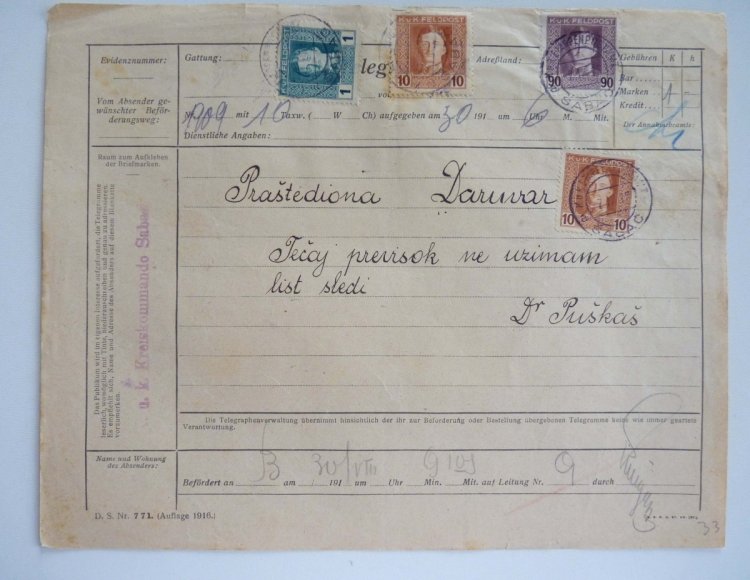 K.u.K. FELDPOST
1 1
K.u.K. FELDPOST
10 10
K.u.K. FELDPOST
90 90
Evidenznummer:
Gattung:
Adreßland:
Gebühren K h
Bar
Marken 1 -
Kredit
Der Annahmebeamte:
Vom Absender ge-
wünschter Beför-
derungsweg:
Nr. 1909 mit 10 Taxw. ( W Ch) aufgegeben am 30 191 um 6 Uhr M. Mit.
Dienstliche Angaben:
Raum zum Aufkleben
der Briefmarken.
K.u.K. FELDPOST
10 10
ŠABAC
Praštediona Daruvar
Tečaj previsok ne uzimam
list sledi
Dr Puškaš
u. k. Kreiskommando Sabac
Das Publikum wird im eigenen Interesse aufgefordert, die Telegramme
Es empfiehlt sich, Name und Adresse des Absenders auf diesem Blankette
vorzumerken.
Die Telegraphenverwaltung übernimmt hinsichtlich der ihr zur Beförderung oder Bestellung übergebenen Telegramme keine wie immer geartete
Verantwortung.
Name und Wohnung
des Absenders:
Befördert an B am 30/VIII 191 um Uhr Min. Mit. auf Leitung Nr. 9 durch
D. S. Nr. 771. (Auflage 1916.)
33